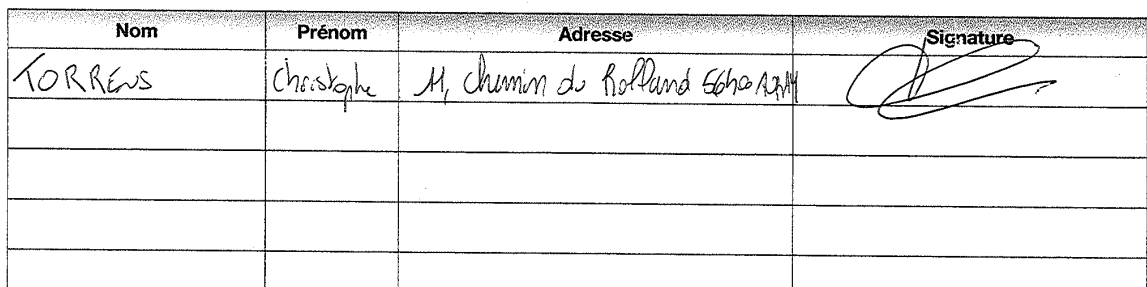 Nom Prénom Adresse Signature
TORRENS Christophe 11, chemin du Rolland 56400